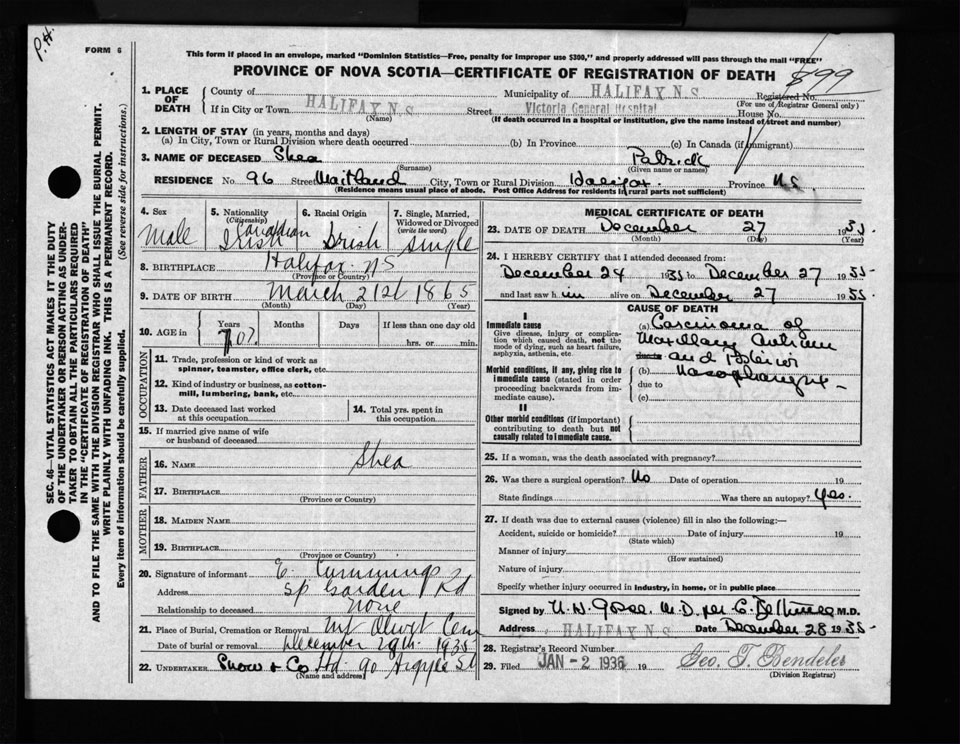 P.H.
FORM 6
This form if placed in an envelope, marked "Dominion Statistics—Free, penalty for improper use $300," and properly addressed will pass through the mail "FREE"
PROVINCE OF NOVA SCOTIA—CERTIFICATE OF REGISTRATION OF DEATH
899
SEC. 46—VITAL STATISTICS ACT MAKES IT THE DUTY
OF THE UNDERTAKER OR PERSON ACTING AS UNDER-
TAKER TO OBTAIN ALL THE PARTICULARS REQUIRED
IN THE "CERTIFICATE OF REGISTRATION OF DEATH"
AND TO FILE THE SAME WITH THE DIVISION REGISTRAR WHO SHALL ISSUE THE BURIAL PERMIT.
WRITE PLAINLY WITH UNFADING INK. THIS IS A PERMANENT RECORD.
Every item of information should be carefully supplied. (See reverse side for instructions.)
1. PLACE OF DEATH
County of
Municipality of HALIFAX N.S
Registered No.
(For use of Registrar General only)
If in City or Town HALIFAX N.S Street Victoria General Hospital House No.
(Name) (If death occurred in a hospital or institution, give the name instead of street and number)
2. LENGTH OF STAY (in years, months and days)
(a) In City, Town or Rural Division where death occurred (b) In Province (c) In Canada (if immigrant)
3. NAME OF DECEASED Shea Patrick
(Surname) (Given name or names)
RESIDENCE No 96 Street Maitland City, Town or Rural Division Halifax Province N.S.
(Residence means usual place of abode. Post Office Address for residents in rural parts not sufficient)
4. Sex Male
5. Nationality (Citizenship) Canadian Irish
6. Racial Origin Irish
7. Single, Married, Widowed or Divorced (write the word) single
8. BIRTHPLACE Halifax NS
(Province or Country)
9. DATE OF BIRTH March 21st 1865
(Month) (Day) (Year)
10. AGE in Years Months Days If less than one day old
70 hrs. or min.
OCCUPATION
11. Trade, profession or kind of work as
spinner, teamster, office clerk, etc.
12. Kind of industry or business, as cotton-
mill, lumbering, bank, etc.
13. Date deceased last worked
at this occupation
14. Total yrs. spent in
this occupation
15. If married give name of wife
or husband of deceased
FATHER
16. NAME Shea
17. BIRTHPLACE
(Province or Country)
MOTHER
18. MAIDEN NAME
19. BIRTHPLACE
(Province or Country)
20. Signature of informant E. Cummings
Address Sp Garden Rd
Relationship to deceased none
21. Place of Burial, Cremation or Removal Mt Olivet Cem
Date of burial or removal December 29th 1935
22. UNDERTAKER Snow + Co Ltd. 90 Argyle St
(Name and address)
MEDICAL CERTIFICATE OF DEATH
23. DATE OF DEATH December 27 1935
(Month) (Day) (Year)
24. I HEREBY CERTIFY that I attended deceased from:
December 24 1935 to December 27 1935
and last saw him alive on December 27 1935
CAUSE OF DEATH
I
Immediate cause
Give disease, injury or complica-
tion which caused death, not the
mode of dying, such as heart failure,
asphyxia, asthenia, etc.
Morbid conditions, if any, giving rise to
immediate cause (stated in order
proceeding backwards from im-
mediate cause).
II
Other morbid conditions (if important)
contributing to death but not
causally related to immediate cause.
(a) Carcinoma of
Maxillary Antrum
and
(b)
due to
(c)
25. If a woman, was the death associated with pregnancy?
26. Was there a surgical operation? No Date of operation 19
State findings Was there an autopsy? Yes.
27. If death was due to external causes (violence) fill in also the following:—
Accident, suicide or homicide? Date of injury 19
(State which)
Manner of injury
(How sustained)
Nature of injury
Specify whether injury occurred in industry, in home, or in public place
Signed by M.D. per M.D.
Address HALIFAX N.S Date December 28 1935
28. Registrar's Record Number
29. Filed JAN - 2 1936 19 Geo. T. Bendeler
(Division Registrar)